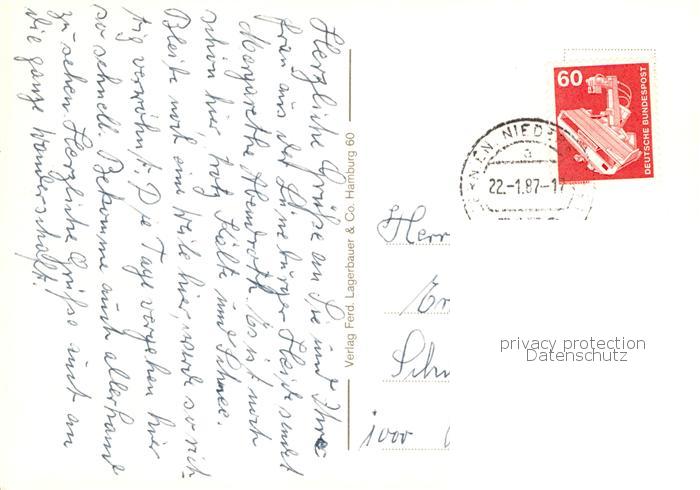 Herzliche Grüße an Sie und Ihre
Frau aus der Lüneburger Heide sendet
Margarethe Abendroth. Es ist noch
schön hier, trotz Kälte und Schnee.
Bleibe noch eine Weile hier, werde so rich-
tig verwöhnt! Die Tage vergehen hier
so schnell. Bekomme auch allerhand
zu sehen. Herzliche Grüße auch an
die ganze Wanderschaft!
Verlag Ferd. Lagerbauer & Co. Hamburg 60
60
DEUTSCHE BUNDESPOST
NIED
a
22.-1.87-17
Herr
Er
Schu
1000
privacy protection
Datenschutz